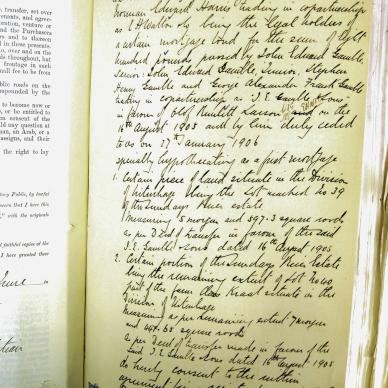 transfer, set over
and the Purchasers
and to themselves
in these presents.
over and on the
throughout, but
frontage in such
shall for to be from
public roads on the
compounded by the
to become now or
or be entitled to
consent of the
any question of
an Arab, or a
assigns, and their
the right to lay
Public, by lawful
that I have this
with the originals
faithful copies of the
I have granted these
Norman Edward Harris trading in copartnership
as E H Walton & being the legal holders of
a certain mortgage bond for the sum of Eight
hundred pounds passed by John Edward Gamble,
Senior; John Edward Gamble, Junior, Stephen
Henry Gamble and George Alexander Frank Gamble
trading in copartnership as J.E. Gamble & Sons
in favour of Olof Larson on the
16th August 1905 and by him duly ceded
to us on 27th January 1906
specially hypothecating as a first mortgage
1. Certain piece of land situate in the Division
of Uitenhage being the Lot marked No 39
of the Sundays River estate
Measuring 5 morgen and 597.3 square roods
as per Deed of transfer in favour of the said
J.E. Gamble & Sons dated 16th August 1905
2. Certain portion of the Sundays River Estate
being the remaining extent of Lot No 40
part of the farm Kraal situate in the
Division of Uitenhage
measuring as per remaining extent 7 morgen
and 447.65 square roods
as per Deed of transfer made in favour of the
said J.E. Gamble & Sons dated 16th August 1905
do hereby consent to the within
agreement being